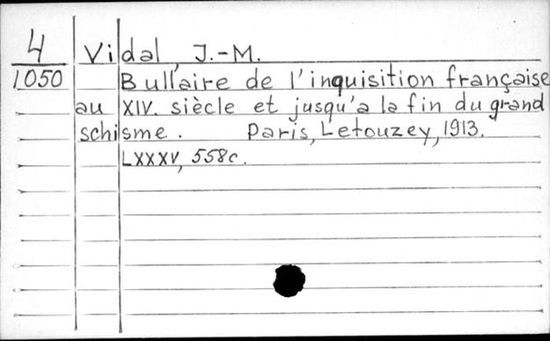 4 Vidal, J.-M.
1050 Bullaire de l'inquisition française
au XIV. siècle et jusqu'a la fin du grand
schisme. Paris, Letouzey, 1913.
LXXXV, 558c.